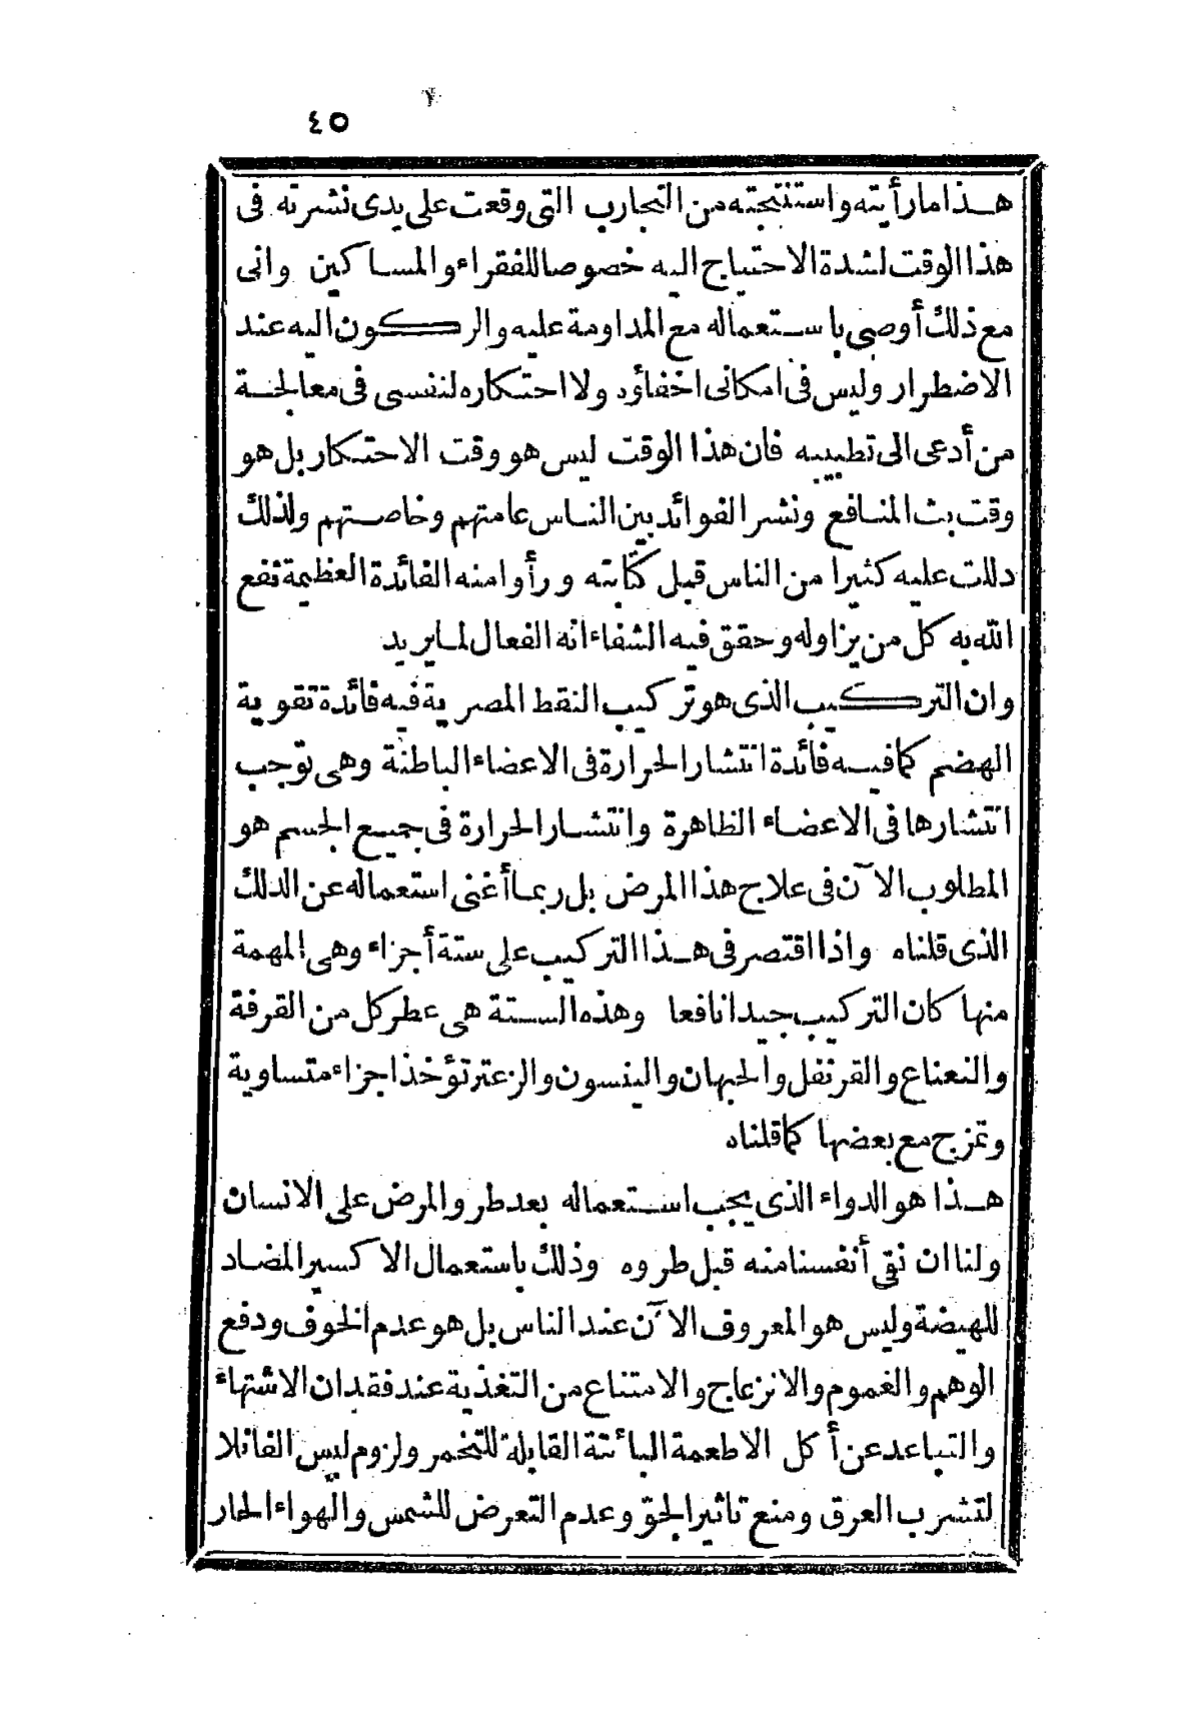 ٤٥
هذا ما رأيته واستنتجته من التجارب التى وقعت على يدى نشرته فى
هذا الوقت لشدة الاحتياج اليه خصوصا للفقراء والمساكين وانى
مع ذلك أوصى باستعماله مع المداومة عليه والركون اليه عند
الاضطرار وليس فى امكانى اخفاؤه ولا احتكاره لنفسى فى معالجة
من أدعى الى تطبيبه فان هذا الوقت ليس هو وقت الاحتكار بل هو
وقت بث المنافع ونشر الفوائد بين الناس عامتهم وخاصتهم ولذلك
دللت عليه كثيرا من الناس قبل كتابته ورأوا منه الفائدة العظيمة نفع
الله به كل من يزاوله وحقق فيه الشفاء انه الفعال لما يريد
وان التركيب الذى هو تركيب النقط المصرية فيه فائدة تقوية
الهضم كما فيه فائدة انتشار الحرارة فى الاعضاء الباطنة وهى توجب
انتشارها فى الاعضاء الظاهرة وانتشار الحرارة فى جميع الجسم هو
المطلوب الآن فى علاج هذا المرض بل ربما أغنى استعماله عن الدلك
الذى قلناه واذا اقتصر فى هذا التركيب على ستة أجزاء وهى المهمة
منها كان التركيب جيدا نافعا وهذه الستة هى عطر كل من القرفة
والنعناع والقرنفل والحبهان والينسون والزعتر تؤخذ اجزاء متساوية
وتمزج مع بعضها كما قلناه
هذا هو الدواء الذى يجب استعماله بعد طرو المرض على الانسان
ولنا ان نقى أنفسنا منه قبل طروه وذلك باستعمال الاكسير المضاد
للهيضة وليس هو المعروف الآن عند الناس بل هو عدم الخوف ودفع
الوهم والغموم والانزعاج والامتناع من التغذية عند فقدان الاشتهاء
والتباعد عن أكل الاطعمة البائتة القابلة للتخمر ولزوم لبس الفانلا
لتشرب العرق ومنع تاثير الجوّ وعدم التعرض للشمس والهواء الحار